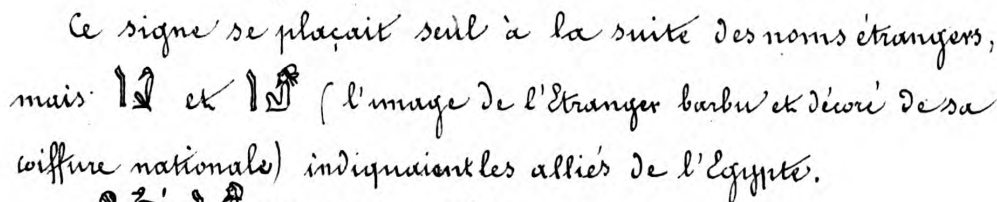 Ce signe se plaçait seul à la suite des noms étrangers,
mais et (l'image de l'Etranger barbu et décoré de sa
coiffure nationale) indiquaient les alliés de l'Egypte.